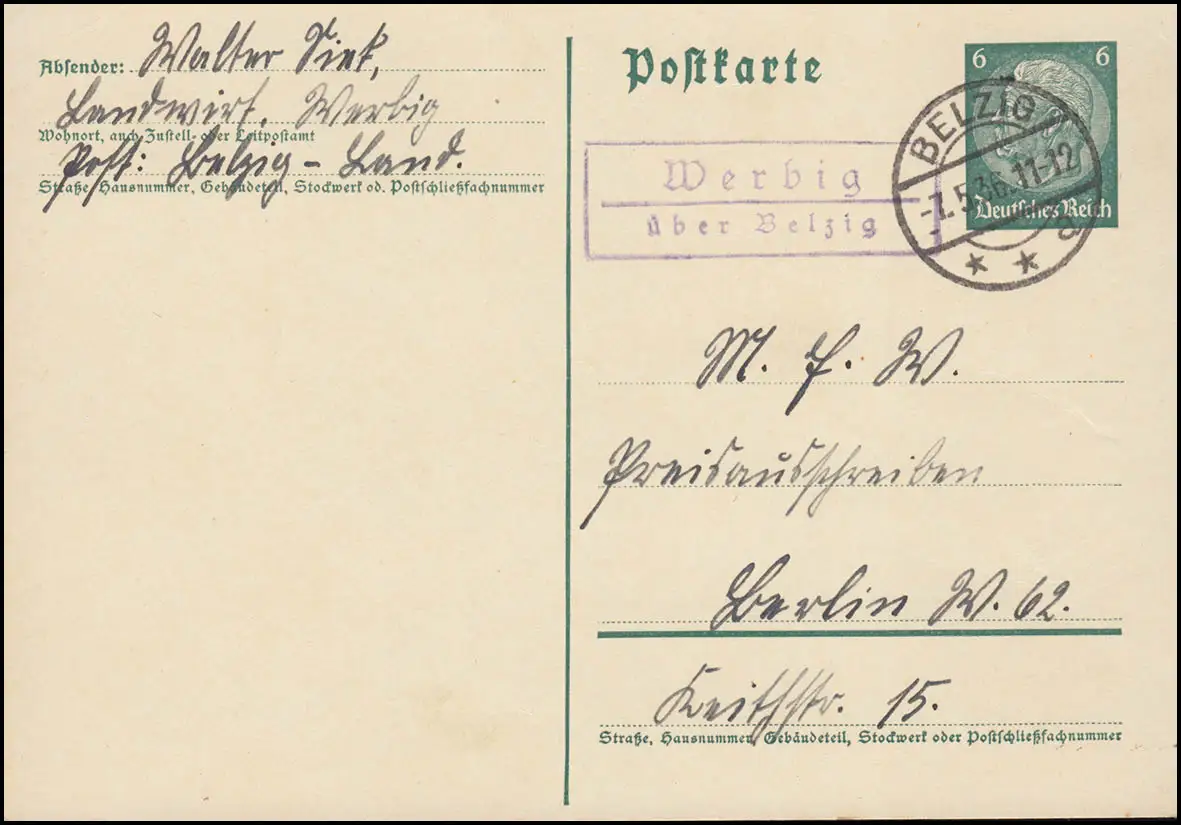 Absender: Walter Siek,
Landwirt, Werbig
Wohnort, auch Zustell- oder Leitpostamt
Post: Belzig-Land.
Straße, Hausnummer, Gebäudeteil, Stockwerk od. Postschließfachnummer
Postkarte
6 6
Deutsches Reich
BELZIG 1
-7.5.36.11-12
a
* *
Werbig
über Belzig
M. f. W.
Preisausschreiben
Berlin W. 62.
Keithstr. 15.
Straße, Hausnummer, Gebäudeteil, Stockwerk oder Postschließfachnummer